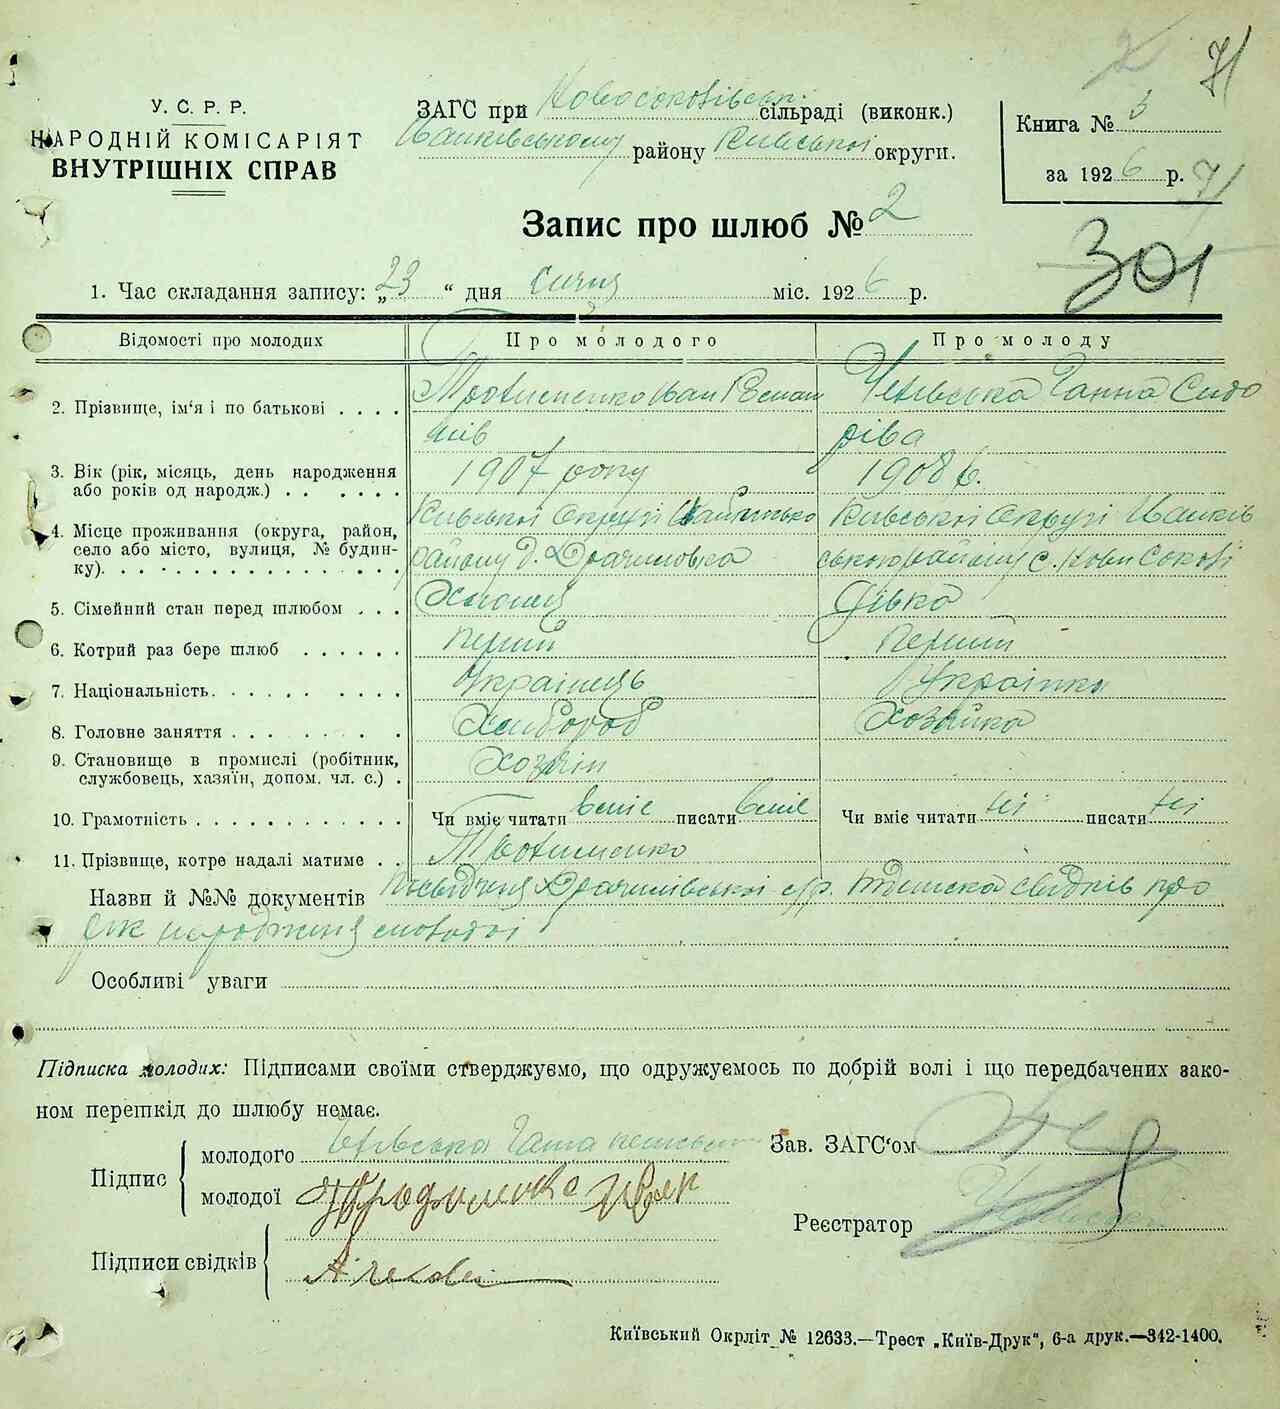 71
У. С. Р. Р.
НАРОДНІЙ КОМІСАРІЯТ
ВНУТРІШНІХ СПРАВ
ЗАГС при Новосоколівськ. сільраді (виконк.)
Іванківському району Київської округи.
Книга № 3
за 1926 р. 71
Запис про шлюб № 2
301
1. Час складання запису: „23“ дня січня міс. 1926 р.
Відомості про молодих Про молодого Про молоду
2. Прізвище, ім'я і по батькові . . . . Іван Чехівська Ганна Сидо
ріва
3. Вік (рік, місяць, день народження 1907 року 1908 р.
або років од народж.) . . . . . . .
4. Місце проживання (округа, район, Київської округи Київської округи Іванків
село або місто, вулиця, № будин- району Драчиловка ського району с. Нови Соколі
ку). . . . . . . . . . . . . . .
5. Сімейний стан перед шлюбом . . . Хлопець Дівка
6. Котрий раз бере шлюб . . . . . . перший перший
7. Національність. . . . . . . . . . Українець Українка
8. Головне заняття . . . . . . . . . Хлибороб Хозяйка
9. Становище в промислі (робітник, Хозяін
службовець, хазяїн, допом. чл. с.) .
10. Грамотність . . . . . . . . . . . Чи вміє читати вміє писати вміє Чи вміє читати ні писати ні
11. Прізвище, котре надалі матиме . .
Назви й №№ документів Драчилівської с/р. свидків про
рік народження молодої
Особливі уваги
Підписка молодих: Підписами своїми стверджуємо, що одружуємось по добрій волі і що передбачених зако-
ном перешкід до шлюбу немає.
Підпис
молодого Чехівська Ганна
молодої Іван
Підписи свідків
Зав. ЗАГС'ом
Реєстратор
Київський Окрліт № 12633.—Трест „Київ-Друк“, 6-а друк.—342-1400.